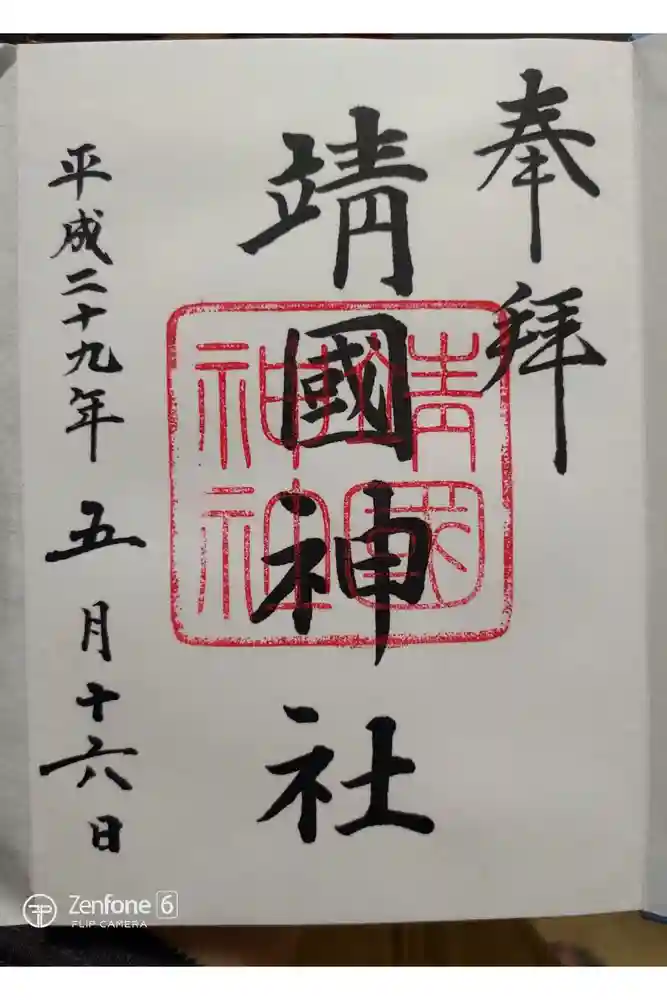 奉拝
靖國神社
靖國
神社
平成二十九年五月十六日
Zenfone 6
FLIP CAMERA